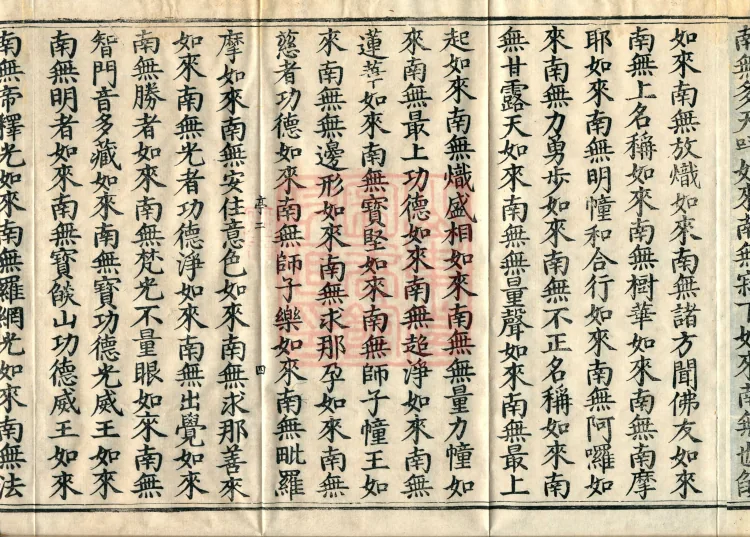 如來南無放熾如來南無諸方聞佛友如來
南無上名稱如來南無樹華如來南無南摩
耶如來南無明幢和合行如來南無阿囉如
來南無力勇步如來南無不正名稱如來南
無甘露天如來南無無量聲如來南無最上
起如來南無熾盛相如來南無無量力幢如
來南無最上功德如來南無超淨如來南無
蓮華如來南無寶堅如來南無師子幢王如
來南無無邊形如來南無求那孕如來南無
慈者功德如來南無師子樂如來南無毗羅
亭二 四
摩如來南無安住意色如來南無求那善來
如來南無光者功德淨如來南無出覺如來
南無勝者如來南無梵光不量眼如來南無
智門音多藏如來南無寶功德光威王如來
南無明者如來南無寶燄山功德威王如來
南無帝釋光如來南無羅網光如來南無法